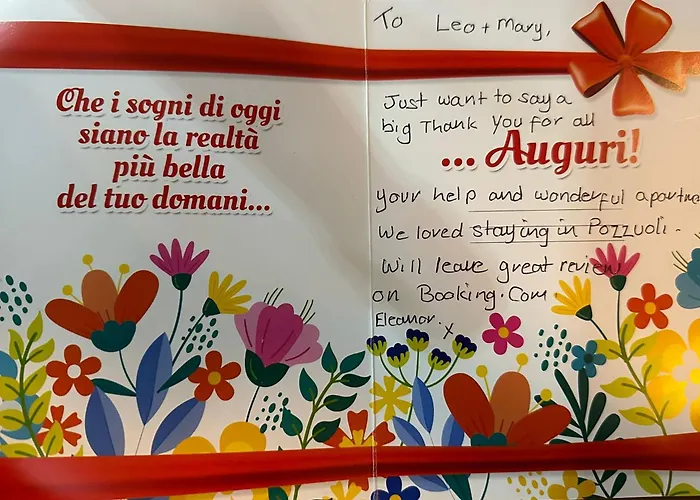 Che i sogni di oggi
siano la realtà
più bella
del tuo domani...
To Leo + Mary,
Just want to say a
big Thank You for all
... Auguri!
your help and wonderful apartme
We loved staying in Pozzuoli.
Will leave great review
on Booking.Com.
Eleanor. x